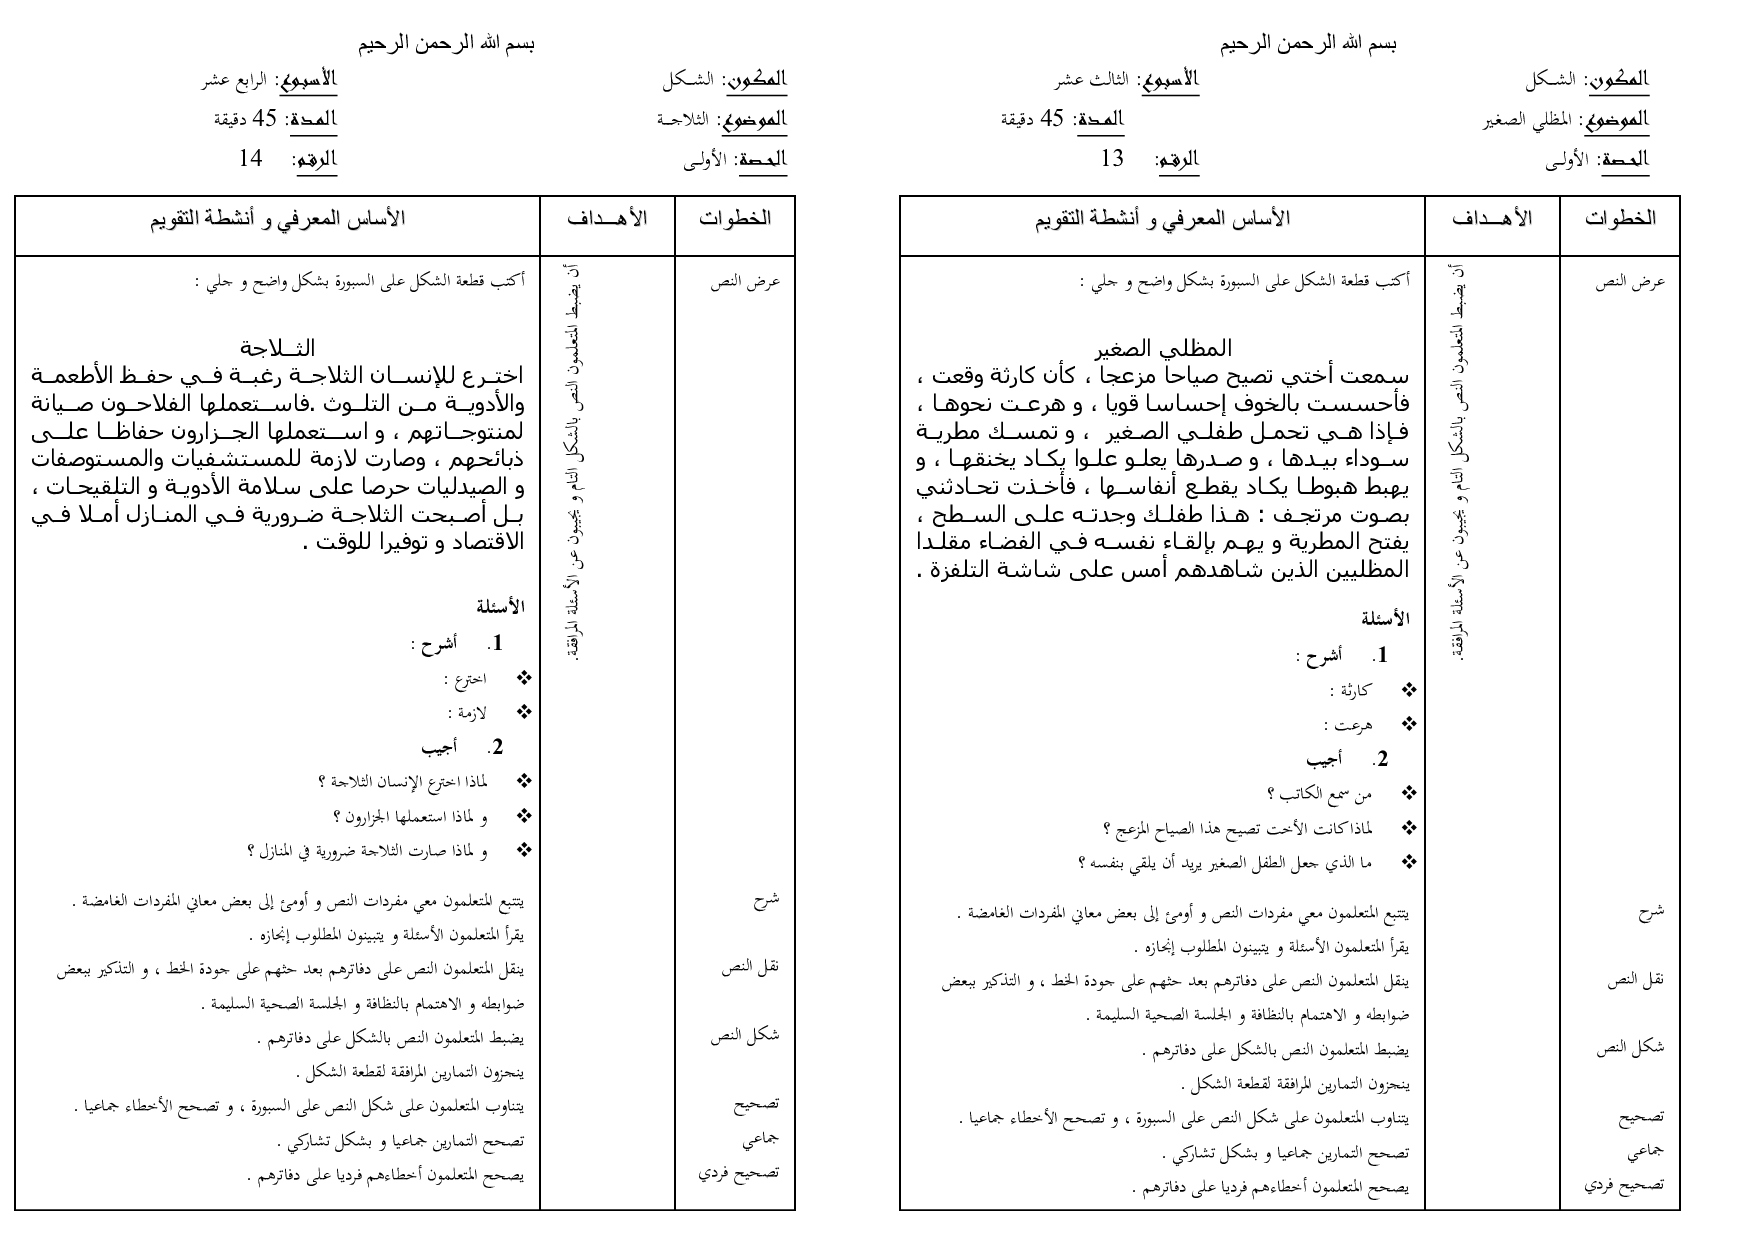 بسم الله الرحمن الرحيم
المكون: الشكل
الأسبوع: الثالث عشر
الموضوع: المظلي الصغير
المدة: 45 دقيقة
الحصة: الأولى
الرقم: 13
الخطوات
الأهداف
الأساس المعرفي و أنشطة التقويم
عرض النص
أن يضبط المتعلمون النص بالشكل التام و يجيبون عن الأسئلة المرافقة.
أكتب قطعة الشكل على السبورة بشكل واضح و جلي :
المظلي الصغير
سمعت أختي تصيح صياحا مزعجا ، كأن كارثة وقعت ،
فأحسست بالخوف إحساسا قويا ، و هرعت نحوها ،
فإذا هي تحمل طفلي الصغير ، و تمسك مطرية
سوداء بيدها ، و صدرها يعلو علوا يكاد يخنقها ، و
يهبط هبوطا يكاد يقطع أنفاسها ، فأخذت تحادثني
بصوت مرتجف : هذا طفلك وجدته على السطح ،
يفتح المطرية و يهم بإلقاء نفسه في الفضاء مقلدا
المظليين الذين شاهدهم أمس على شاشة التلفزة .
الأسئلة
1. أشرح :
❖ كارثة :
❖ هرعت :
2. أجيب
❖ من سمع الكاتب ؟
❖ لماذا كانت الأخت تصيح هذا الصياح المزعج ؟
❖ ما الذي جعل الطفل الصغير يريد أن يلقي بنفسه ؟
شرح
يتتبع المتعلمون معي مفردات النص و أومئ إلى بعض معاني المفردات الغامضة .
يقرأ المتعلمون الأسئلة و يتبينون المطلوب إنجازه .
نقل النص
ينقل المتعلمون النص على دفاترهم بعد حثهم على جودة الخط ، و التذكير ببعض
ضوابطه و الاهتمام بالنظافة و الجلسة الصحية السليمة .
شكل النص
يضبط المتعلمون النص بالشكل على دفاترهم .
ينجزون التمارين المرافقة لقطعة الشكل .
تصحيح
يتناوب المتعلمون على شكل النص على السبورة ، و تصحح الأخطاء جماعيا .
جماعي
تصحح التمارين جماعيا و بشكل تشاركي .
تصحيح فردي
يصحح المتعلمون أخطاءهم فرديا على دفاترهم .
بسم الله الرحمن الرحيم
المكون: الشكل
الأسبوع: الرابع عشر
الموضوع: الثلاجة
المدة: 45 دقيقة
الحصة: الأولى
الرقم: 14
الخطوات
الأهداف
الأساس المعرفي و أنشطة التقويم
عرض النص
أن يضبط المتعلمون النص بالشكل التام و يجيبون عن الأسئلة المرافقة.
أكتب قطعة الشكل على السبورة بشكل واضح و جلي :
الثلاجة
اخترع للإنسان الثلاجة رغبة في حفظ الأطعمة
والأدوية من التلوث .فاستعملها الفلاحون صيانة
لمنتوجاتهم ، و استعملها الجزارون حفاظا على
ذبائحهم ، وصارت لازمة للمستشفيات والمستوصفات
و الصيدليات حرصا على سلامة الأدوية و التلقيحات ،
بل أصبحت الثلاجة ضرورية في المنازل أملا في
الاقتصاد و توفيرا للوقت .
الأسئلة
1. أشرح :
❖ اخترع :
❖ لازمة :
2. أجيب
❖ لماذا اخترع الإنسان الثلاجة ؟
❖ و لماذا استعملها الجزارون ؟
❖ و لماذا صارت الثلاجة ضرورية في المنازل ؟
شرح
يتتبع المتعلمون معي مفردات النص و أومئ إلى بعض معاني المفردات الغامضة .
يقرأ المتعلمون الأسئلة و يتبينون المطلوب إنجازه .
نقل النص
ينقل المتعلمون النص على دفاترهم بعد حثهم على جودة الخط ، و التذكير ببعض
ضوابطه و الاهتمام بالنظافة و الجلسة الصحية السليمة .
شكل النص
يضبط المتعلمون النص بالشكل على دفاترهم .
ينجزون التمارين المرافقة لقطعة الشكل .
تصحيح
يتناوب المتعلمون على شكل النص على السبورة ، و تصحح الأخطاء جماعيا .
جماعي
تصحح التمارين جماعيا و بشكل تشاركي .
تصحيح فردي
يصحح المتعلمون أخطاءهم فرديا على دفاترهم .